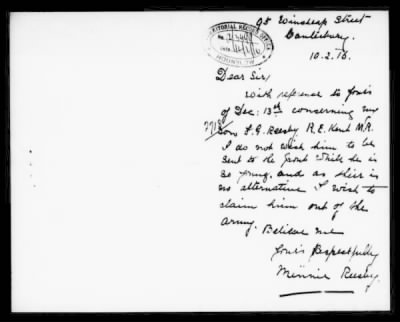 98 Wincheap Street
Canterbury.
10.2.16.
TERRITORIAL RECORD OFFICE
HOUNSLOW
Dear Sir/
With refence to yours
of Dec: 13th concerning my
Son F. G. Reesby R.E. Kent
I do not wish him to be
sent to the front while he is
so young. and as their is
no alternative I wish to
claim him out of the
army. Believe me
yours Respectfully
Minnie Reesby.